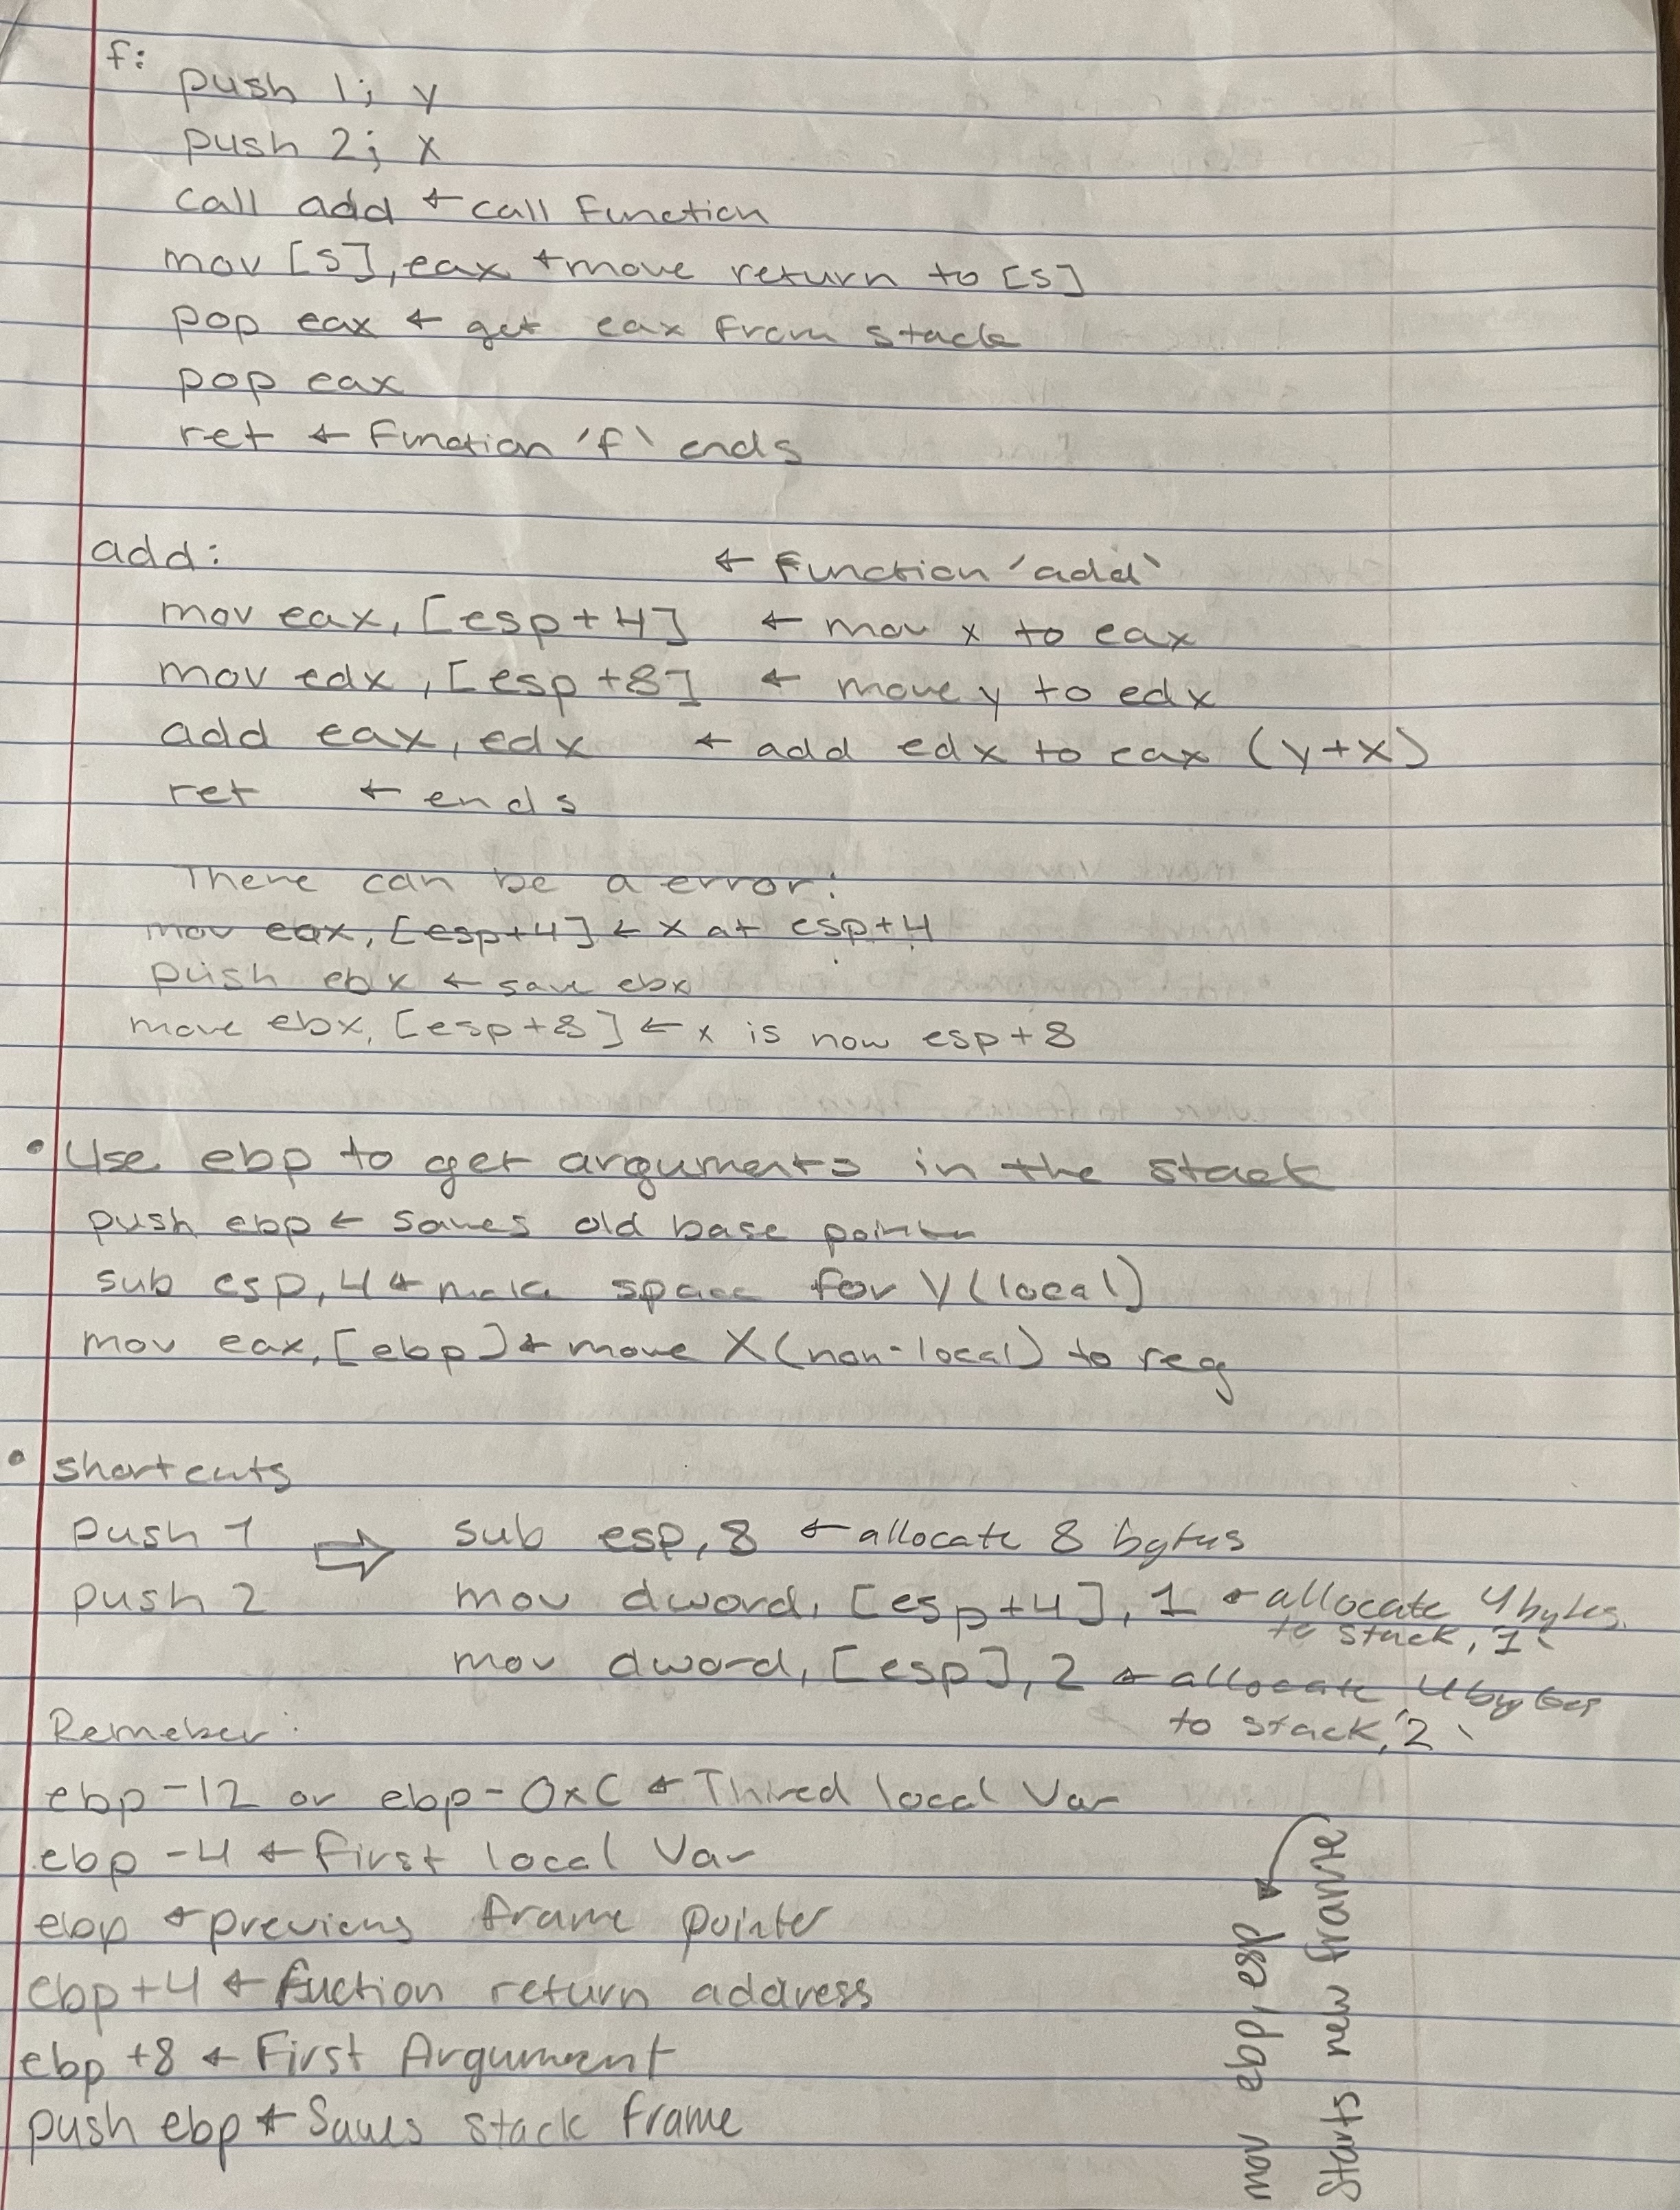 f:
push 1; y
push 2; x
call add ← call Function
mov [s], eax ← move return to [s]
pop eax ← get eax From stack
pop eax
ret ← Function 'f' ends
add: ← Function 'add'
mov eax, [esp+4] ← mov x to eax
mov edx, [esp+8] ← move y to edx
add eax, edx ← add edx to eax (y+x)
ret ← ends
There can be a error:
mov eax, [esp+4] ← x at esp+4
push ebx ← save ebx
move ebx, [esp+8] ← x is now esp+8
• Use ebp to get arguments in the stack
push ebp ← saves old base pointer
sub esp, 4 ← make space for y (local)
mov eax, [ebp] ← move X (non-local) to reg
• shortcuts
push 1 ⇒ sub esp, 8 ← allocate 8 bytes
push 2 mov dword, [esp+4], 1 ← allocate 4 bytes
to stack, '1'
mov dword, [esp], 2 ← allocate 4 bytes
to stack, '2'
Remeber:
ebp -12 or ebp - 0xC ← Thired local Var
ebp -4 ← first local Var
ebp ← previous frame pointer
ebp+4 ← fuction return address
ebp +8 ← First Argument
push ebp ← Saves stack frame
mov ebp, esp
Starts new frame